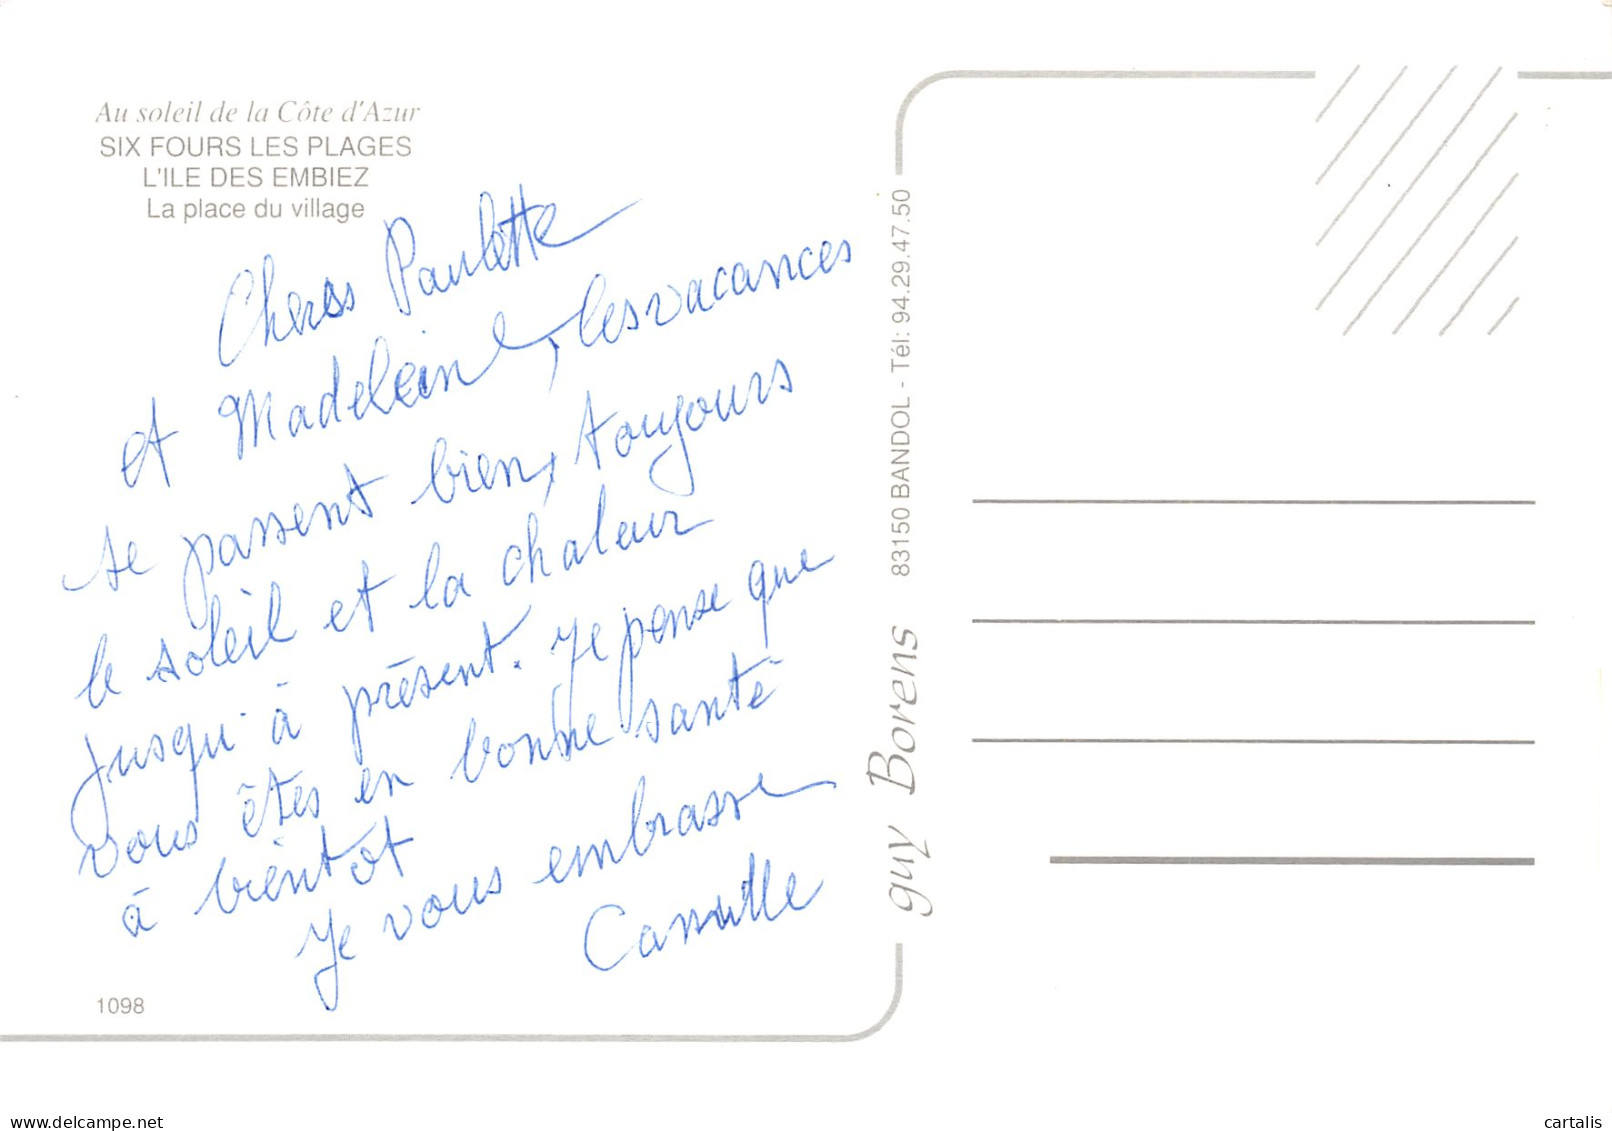 Au soleil de la Côte d'Azur
SIX FOURS LES PLAGES
L'ILE DES EMBIEZ
La place du village
Cheres Paulette
et Madeleine, les vacances
se passent bien, toujours
le soleil et la chaleur
jusqu'à présent. Je pense que
vous êtes en bonne santé
à bientôt
Je vous embrasse
Camille
1098
guy Borens 83150 BANDOL - Tél: 94.29.47.50
www.delcampe.net
cartalis